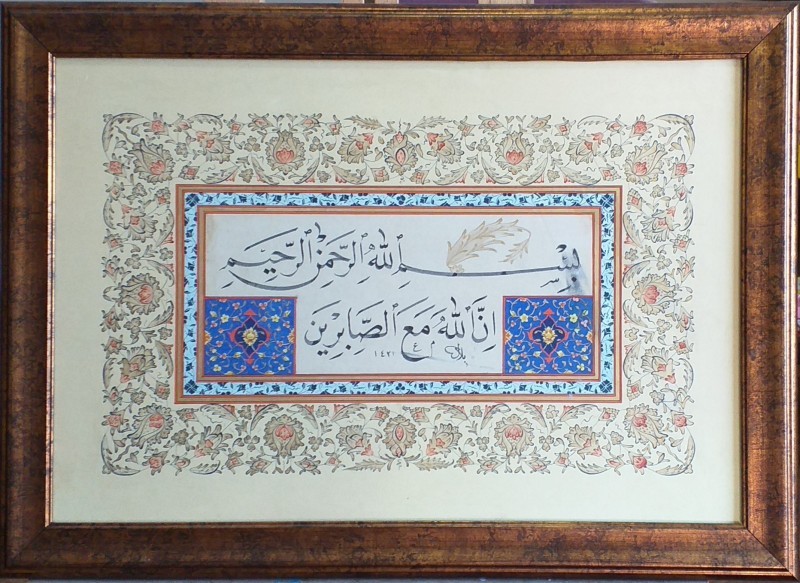 بِسْمِ اللهِ الرَّحْمٰنِ الرَّحِيْمِ
اِنَّ اللهَ مَعَ الصَّابِرِيْنَ
١٤٢١